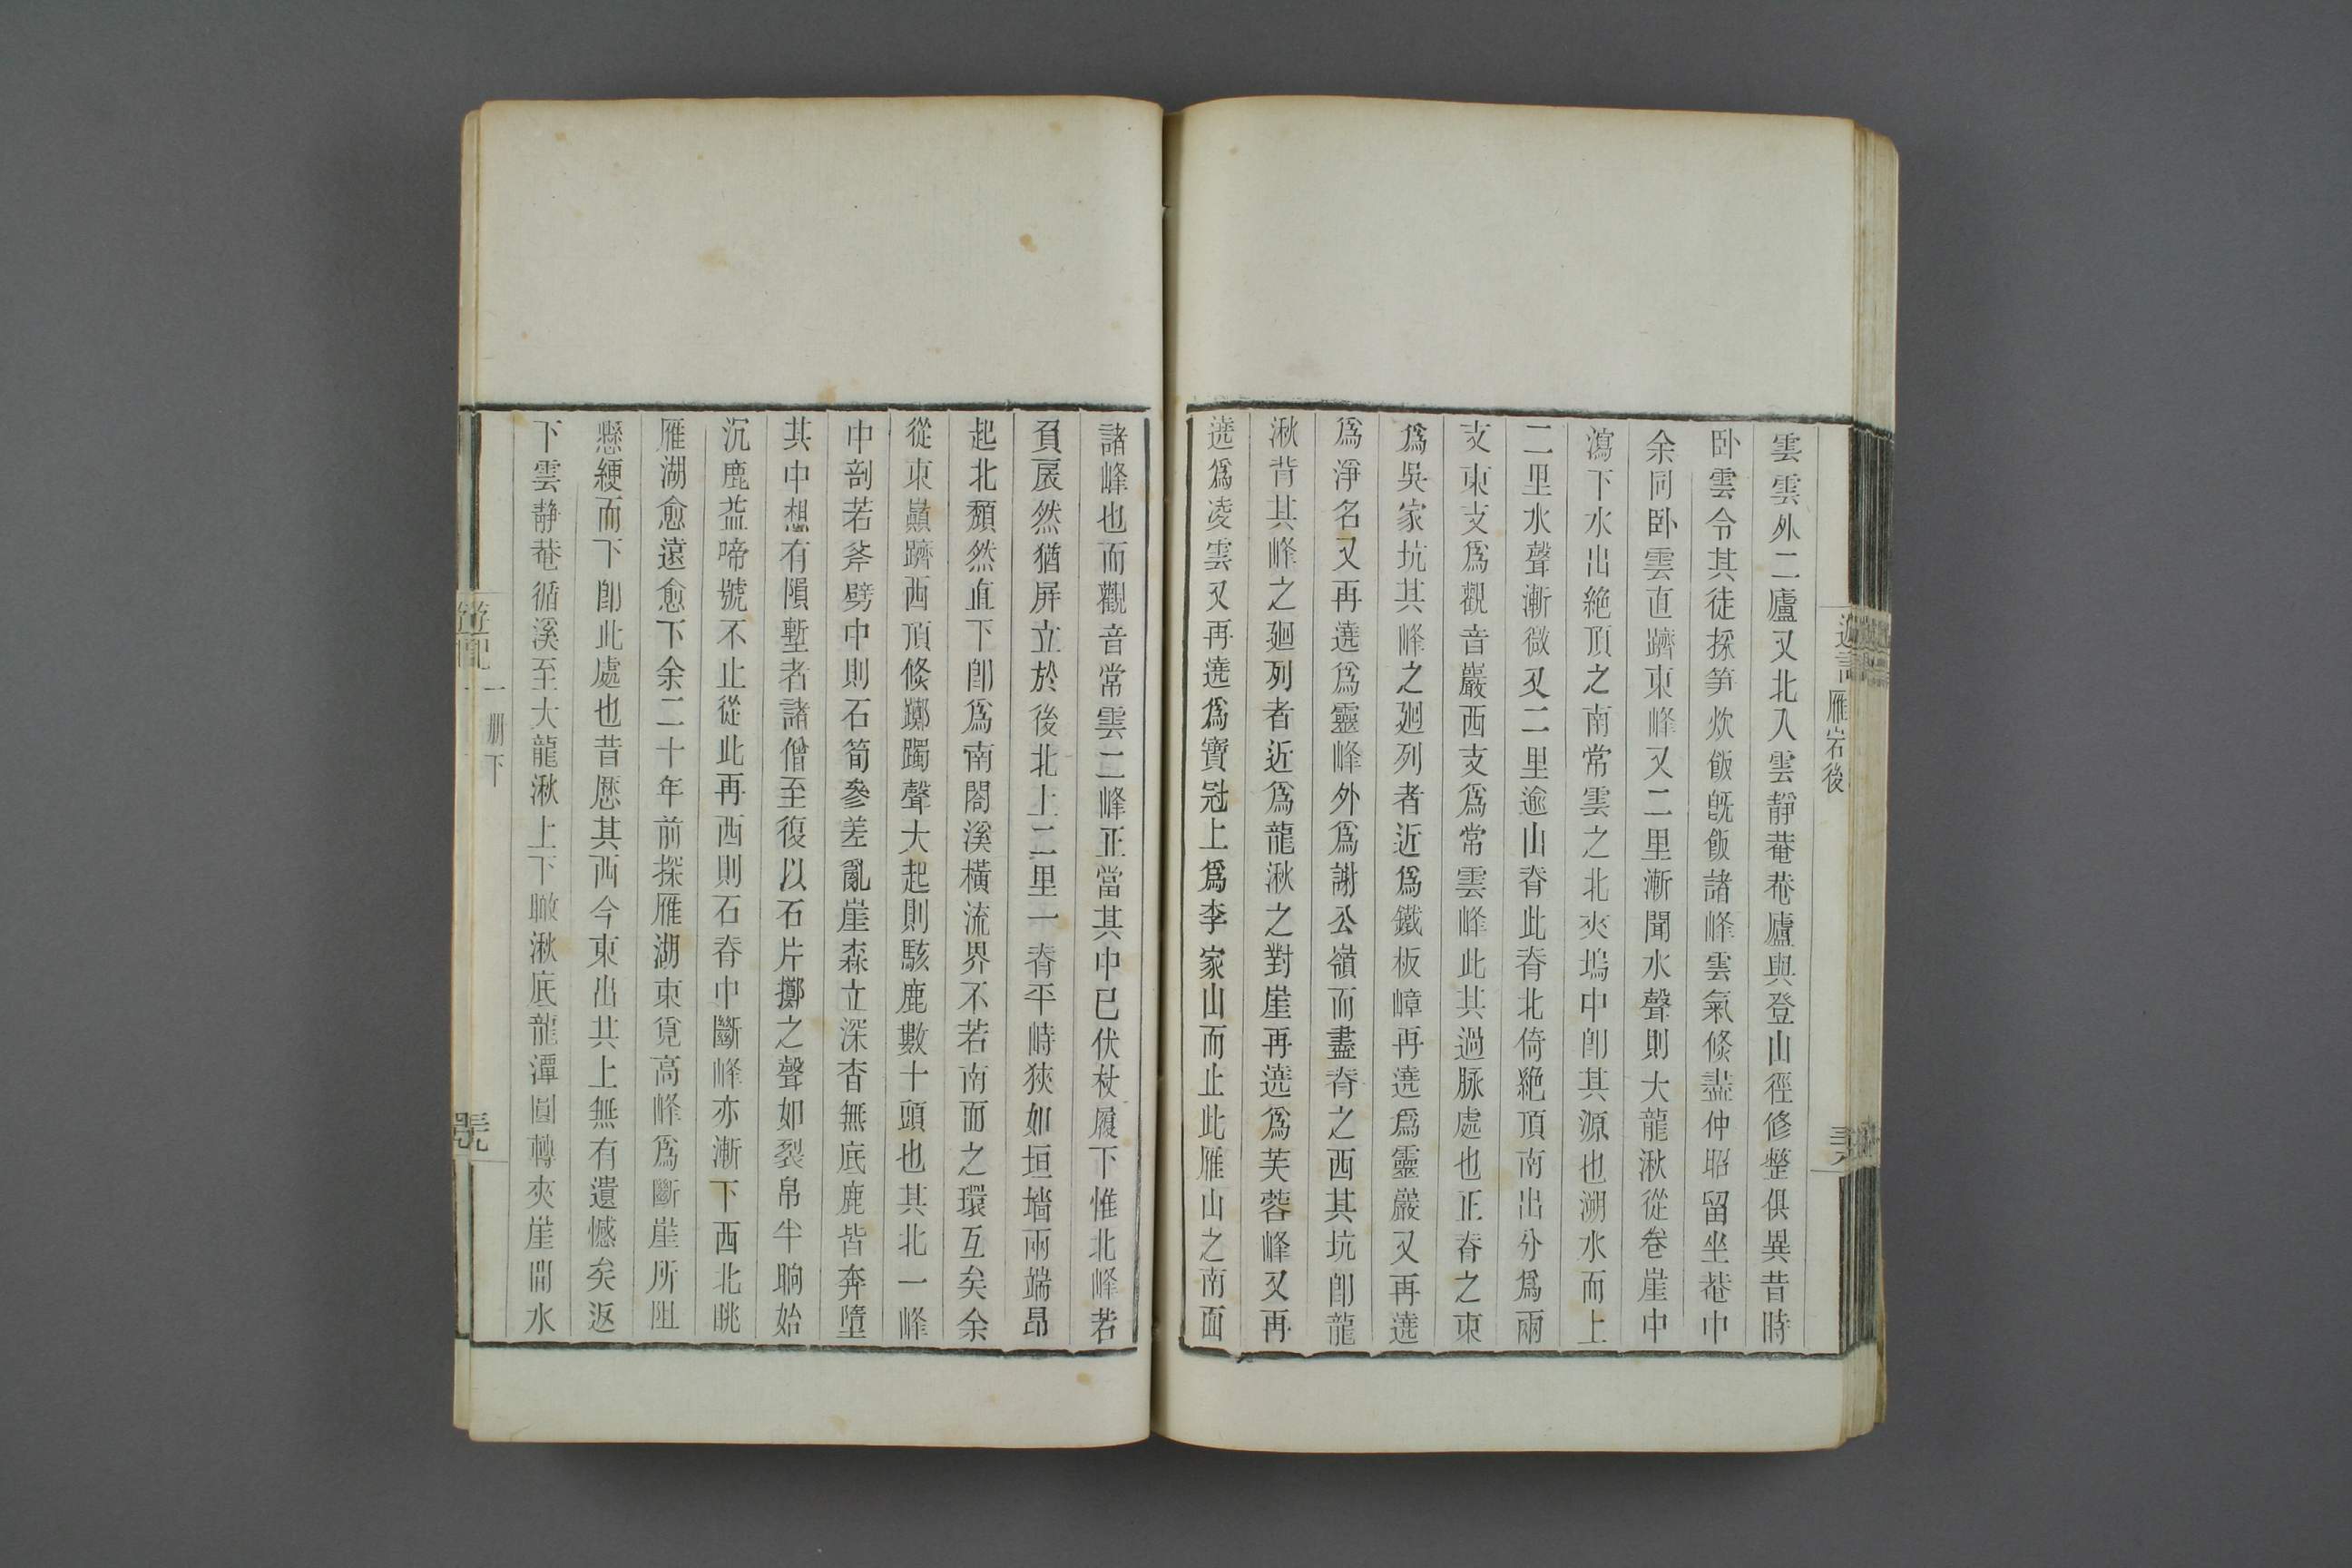 遊記 雁岩後
雲雲外二廬又北入雲靜菴菴廬與登山徑修整俱異昔時
卧雲令其徒採笋炊飯既飯諸峰雲氣倐盡仲昭留坐菴中
余同卧雲直躋東峰又二里漸聞水聲則大龍湫從卷崖中
瀉下水出絶頂之南常雲之北夾塢中卽其源也溯水而上
二里水聲漸微又二里逾山脊此脊北倚絶頂南出分爲兩
支東支爲觀音巖西支爲常雲峰此其過脉處也正脊之東
爲吳家坑其峰之廻列者近爲鐵板嶂再遶爲靈巖又再遶
爲淨名又再遶爲靈峰外爲謝公嶺而盡脊之西其坑卽龍
湫背其峰之廻列者近爲龍湫之對崖再遶爲芙蓉峰又再
遶爲凌雲又再遶爲寶冠上爲李家山而止此雁山之南面
諸峰也而觀音常雲二峰正當其中已伏杖履下惟北峰若
負扆然猶屏立於後北上二里一脊平峙狹如垣墻兩端昂
起北頹然直下卽爲南閤溪橫流界不若南面之環互矣余
從東巔躋西頂倐躑躅聲大起則駭鹿數十頭也其北一峰
中剖若斧劈中則石筍參差亂崖森立深杳無底鹿皆奔墮
其中想有隕塹者諸僧至復以石片擲之聲如裂帛半晌始
沉鹿益啼號不止從此再西則石脊中斷峰亦漸下西北眺
雁湖愈遠愈下余二十年前探雁湖東覓高峰爲斷崖所阻
懸綆而下卽此處也昔歷其西今東出其上無有遺憾矣返
下雲靜菴循溪至大龍湫上下瞰湫底龍潭圓轉夾崖間水
遊記 一册下